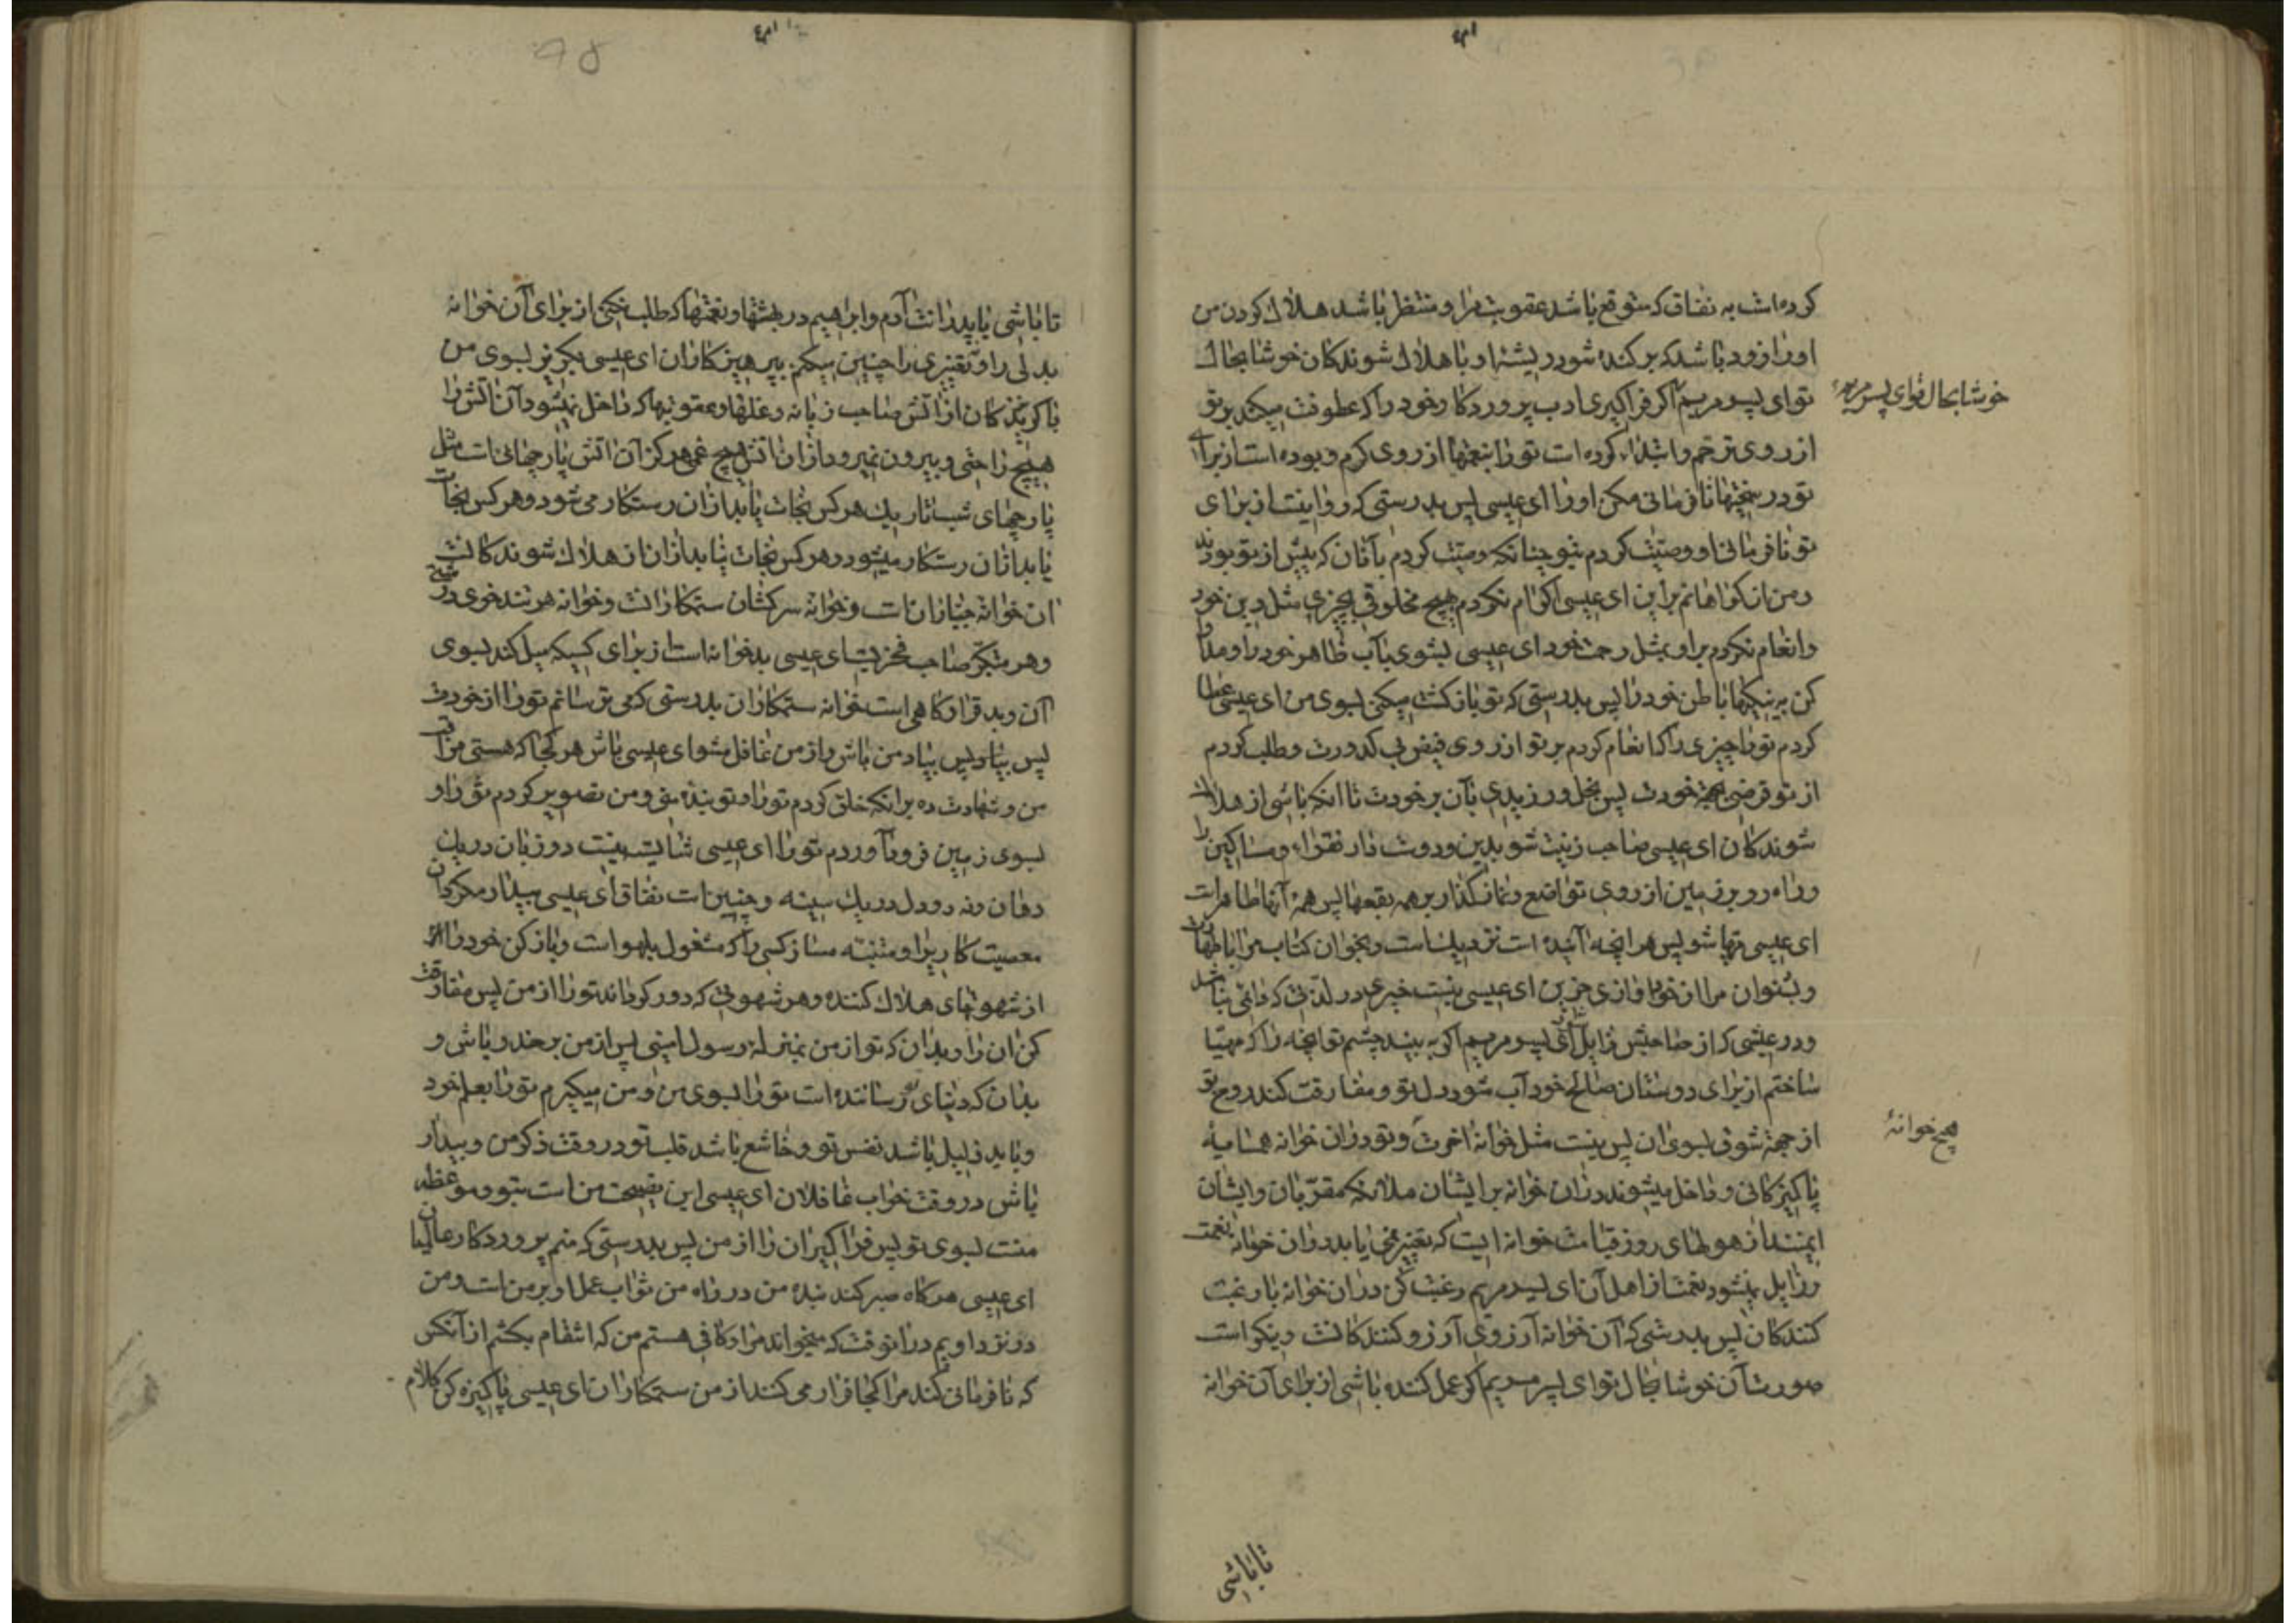 کرده است به نفاق که متوقع باشد عقوبت مرا و منتظر باشد هلاک کردن من
او را زود باشد که بر کنده شود ریشه او با هلاک شوندکان خوشا بحال
تو ای پسر مریم اکر فرا کیری ادب پروردکار خود را که عطوفت میکند بر تو
از روی ترحم و ابتداء کرده است تو را بنعمتها از روی کرم و بوده است از برای
تو در سختیها نافرمانی مکن او را ای عیسی پس بدرستی که روا نیست از برای
تو نافرمانی او وصیت کردم بتو چنانکه وصیت کردم بآنان که پیش از تو بودند
و من از کواهانم بر این ای عیسی اکرام نکردم هیچ مخلوقی بچیزی مثل دین خود
و انعام نکردم بر او بمثل رحمت خود ای عیسی بشوی بآب ظاهر خود را و مداوا
کن به نیکیها باطن خود را پس بدرستی که تو بازکشت میکنی بسوی من ای عیسی عطا
کردم تو را چیزی را که انعام کردم بر تو از روی فیض بی کدورت و طلب کردم
از تو قرضی بجهة خودت پس بخل ورزیدی بآن بر خودت تا انکه باشی از هلاک
شوندکان ای عیسی صاحب زینت شو بدین و دوست دار فقراء و مساکین را
و راه رو بر زمین از روی تواضع و نماز کذار بر همه بقعها پس همه آنها طاهر است
ای عیسی مهیا شو پس هر انچه آینده است نزدیک است و بخوان کتاب مرا با طهارت
و بشنوان مرا از خود اوازی حزین ای عیسی نیست خیری در لذتی که دائمی نباشد
و در عیشی که از صاحبش زایل شود ای پسر مریم اکر به بیند چشم تو انچه را که مهیا
ساختم از برای دوستان صالح خود آب شود دل تو و مفارقت کند روح تو
از جهة شوق بسوی ان پس نیست مثل خوانه اخرت و تو در ان خوانه همسایهٔ
پاکیزکانی و داخل میشوند در ان خوانه بر ایشان ملائکه مقربان و ایشان
ایمنند از هولهای روز قیامت خوانه ایست که تغییر نمی یابد در ان خوانه نعمت
و زایل نمیشود نعمت از اهل آن ای پسر مریم رغبت کن در ان خوانه با رغبت
کنندکان پس بدرستی که آن خوانه آرزوی آرزو کنندکانست و نیکو است
صورت آن خوشا بحال تو ای پسر مریم اکر عمل کننده باشی از برای آن خوانه
خوشا بحال تو ای پسر مریم
هیچ خوانهٔ
تا باشی
تا باشی با پدرانت آدم و ابراهیم در بهشتها و نعمتها که طلب نکنی از برای آن خوانه
بدلی را و تغییری را چنین میکنم بپرهیزکاران ای عیسی بکریز بسوی من
با کریزندکان از آتش صاحب زبانه و غلها و عقوبتها که داخل نمیشود آن آتش را
هیچ راحتی و بیرون نمیرود از ان آتش هیچ غمی هرکز آن آتش پارچهائی است مثل
پارچهای شب تاریک هر کس نجات یابد از ان رستکار می شود و هر کس نجات
یابد از ان رستکار میشود و هر کس نجات نیابد از ان از هلاک شوندکانست
ان خوانه جباران است و خوانه سرکشان ستمکارانست و خوانه هر تند خوی
و هر متکبر صاحب فخریست ای عیسی بد خوانه است از برای کسیکه میل کند بسوی
آن و بد قرارکاهی است خوانه ستمکاران بدرستی که می ترسانم تو را از خودت
پس بپا پس بیاد من باش و از من غافل مشو ای عیسی باش هر کجا که هستی مراقب
من و شهادت ده بر انکه خلق کردم تو را و تو بنده منی و من تصویر کردم تو را و
بسوی زمین فرود آوردم تو را ای عیسی شایسته نیست دو زبان در یک
دهان و نه دو دل در یک سینه و چنین است نفاق ای عیسی بیدار مکردان
معصیت کاری را و متنبه مساز کسی را که مشغول بلهو است و باز کن خود را
از شهوتهای هلاک کننده و هر شهوتی که دور کرداند تو را از من پس مفارقت
کن ان را و بدان که تو از من بمنزله رسول امینی پس از من بر حذر باش و
بدان که دنیای تو رساننده است تو را بسوی من و من میکیرم تو را بعلم خود
و باید ذلیل باشد نفس تو و خاشع باشد قلب تو در وقت ذکر من و بیدار
باش در وقت خواب غافلان ای عیسی این نصیحت من است بتو و موعظه
منست بسوی تو پس فرا کیر ان را از من پس بدرستی که منم پروردکار عالمیان
ای عیسی هرکاه صبر کند بندهٔ من در راه من ثواب عمل او بر من است و من
در نزد اویم در انوقت که میخواند مرا و کافی هستم من که انتقام بکشم از آنکس
که نافرمانی کند مرا کجا فرار می کنند از من ستمکاران ای عیسی پاکیزه کن کلام